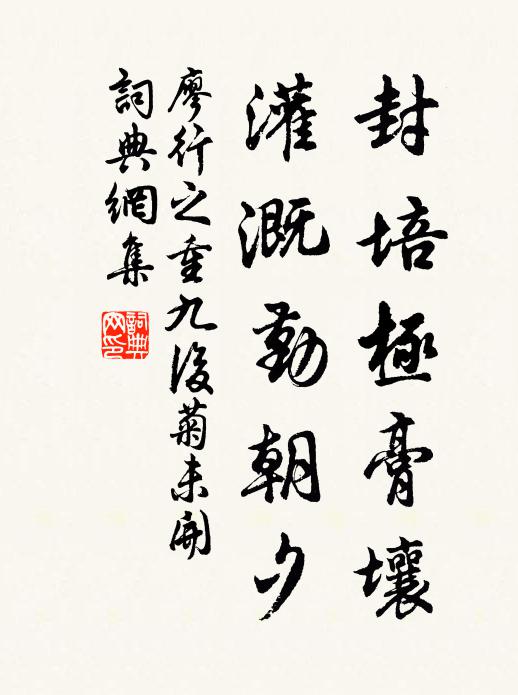 封培極膏壤
灌溉勤朝夕
廖行之重九後菊未開
詞典網集
詞典
网印